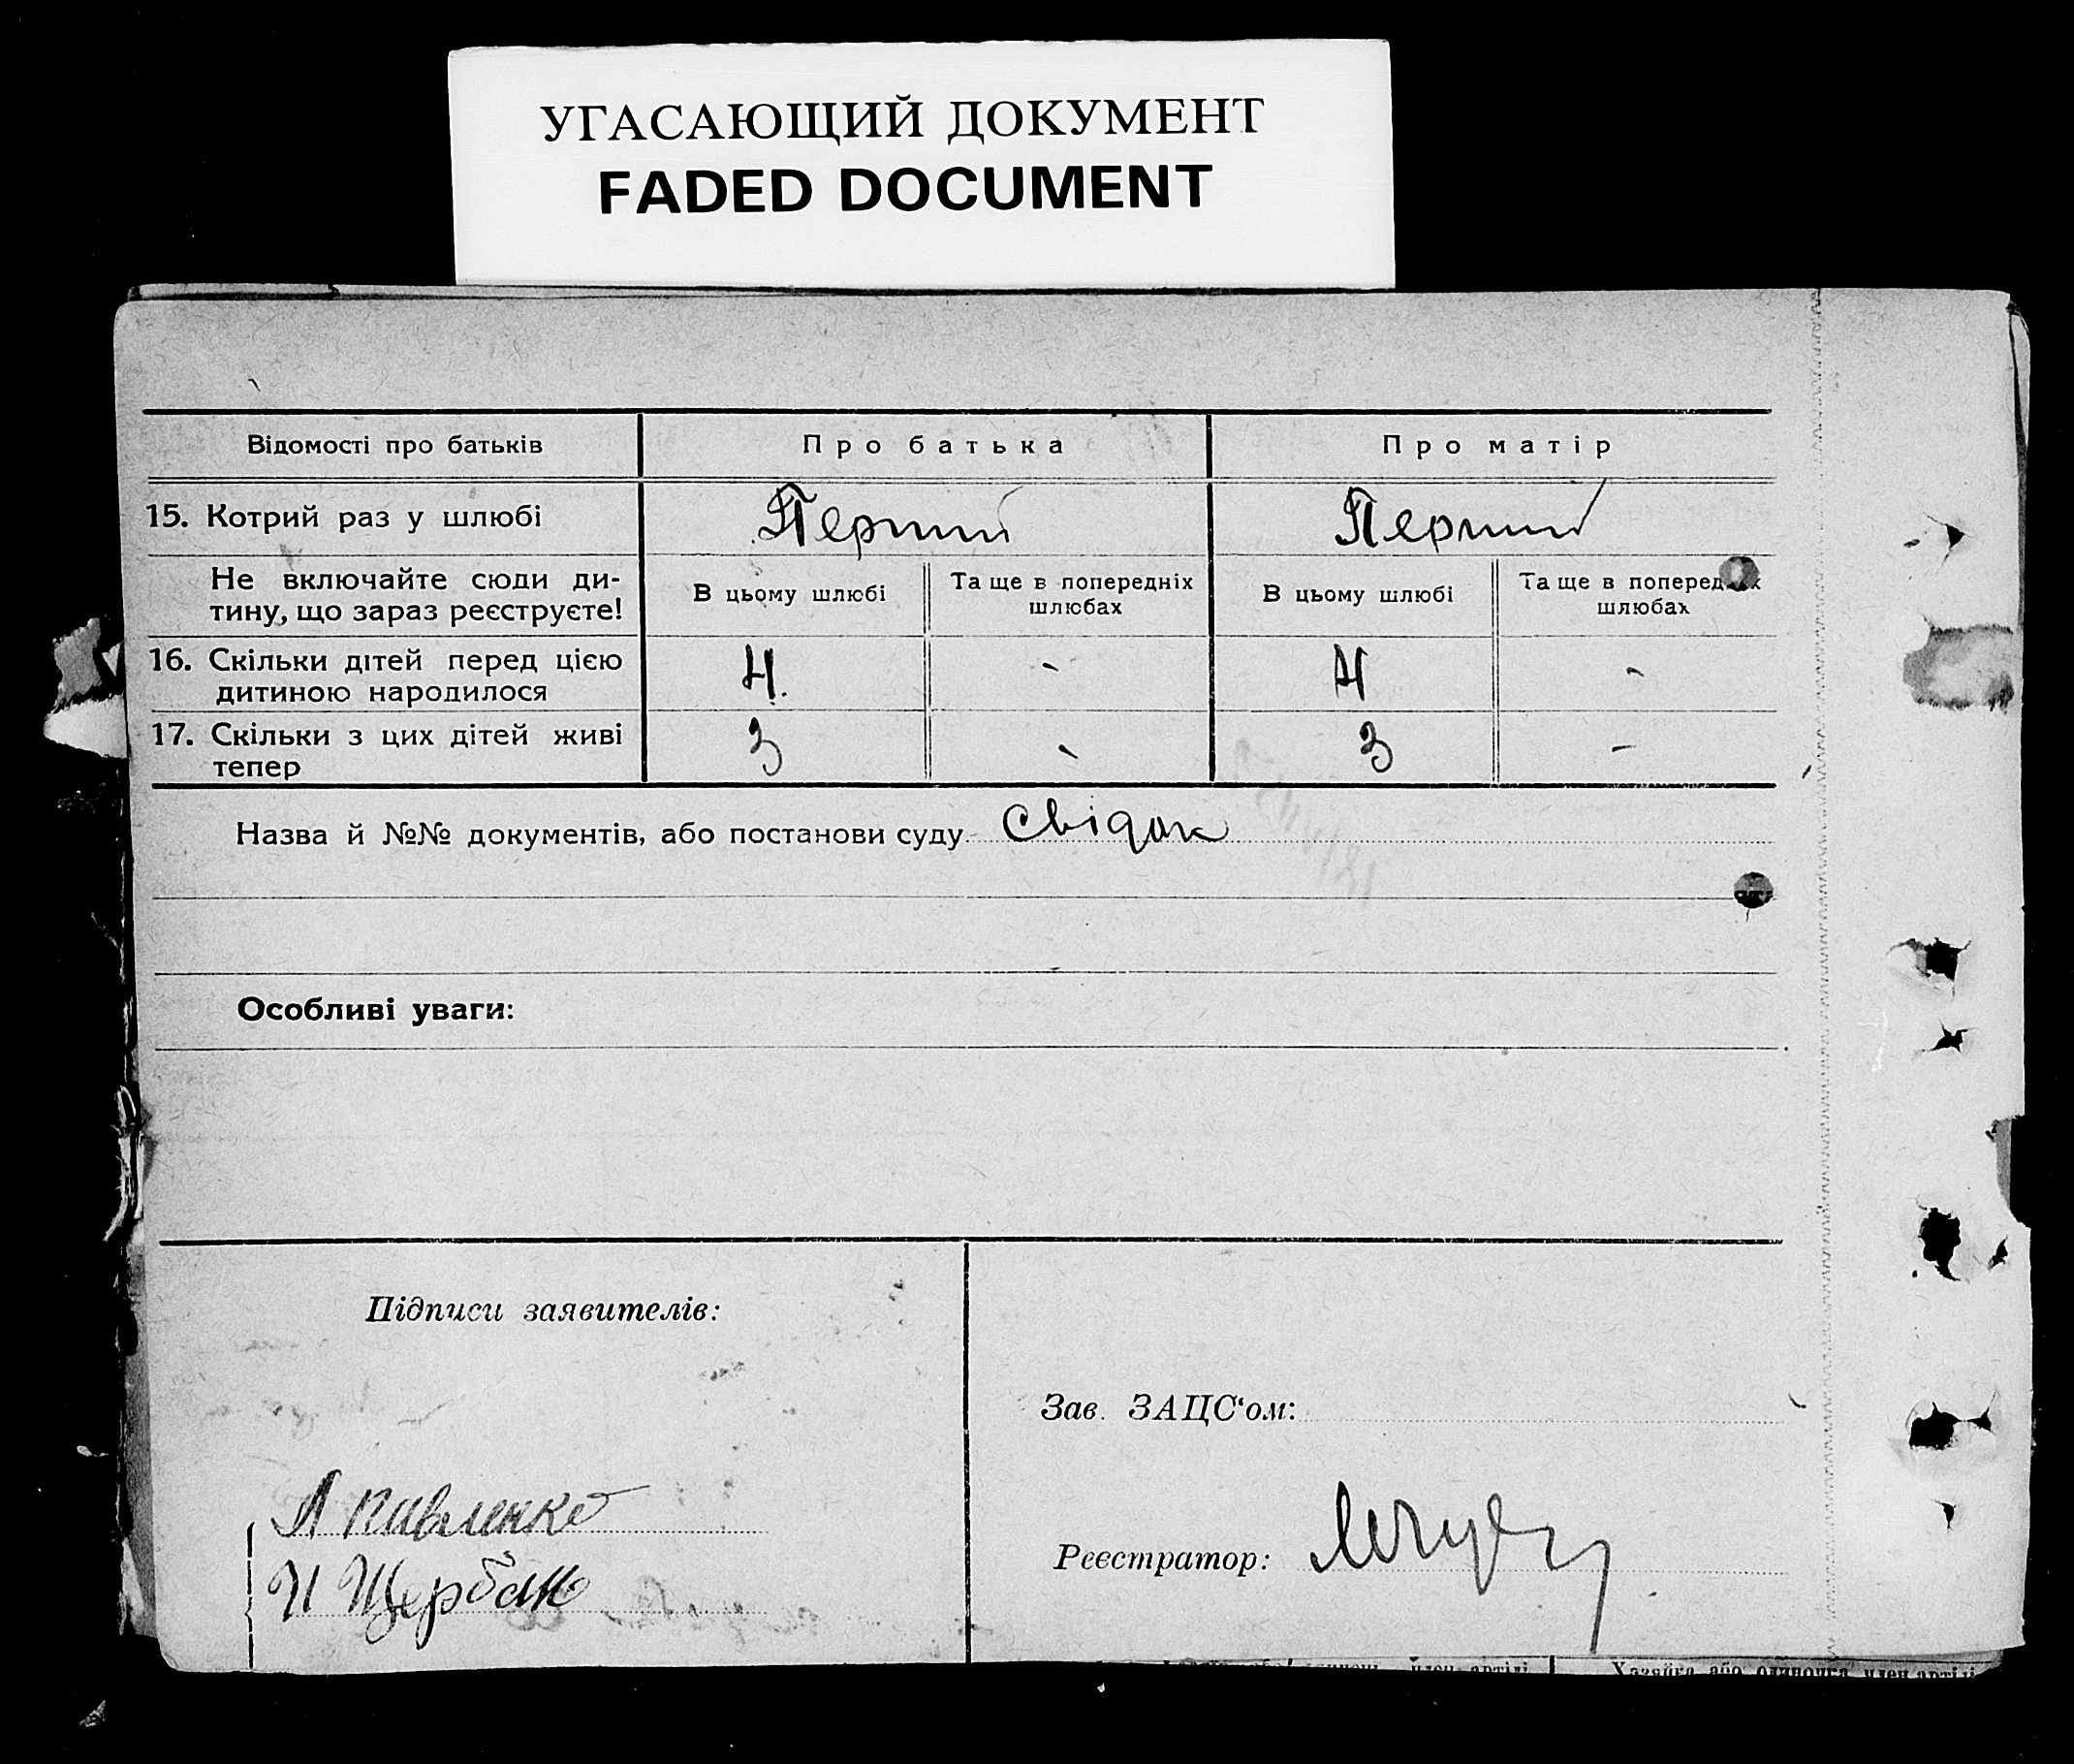 УГАСАЮЩИЙ ДОКУМЕНТ
FADED DOCUMENT
Відомості про батьків
Про батька
Про матір
15. Котрий раз у шлюбі
Перший
Перший
Не включайте сюди ди-
тину, що зараз реєструєте!
В цьому шлюбі
Та ще в попередніх
шлюбах
В цьому шлюбі
Та ще в попередніх
шлюбах
16. Скільки дітей перед цією
дитиною народилося
4.
-
4
-
17. Скільки з цих дітей живі
тепер
3
-
3
-
Назва й №№ документів, або постанови суду Свідок
Особливі уваги:
Підписи заявителів:
Зав. ЗАЦС‘ом:
Л Павленко
И Щербак
Реєстратор:
член артілі
Хазяїка або одиночка член артілі